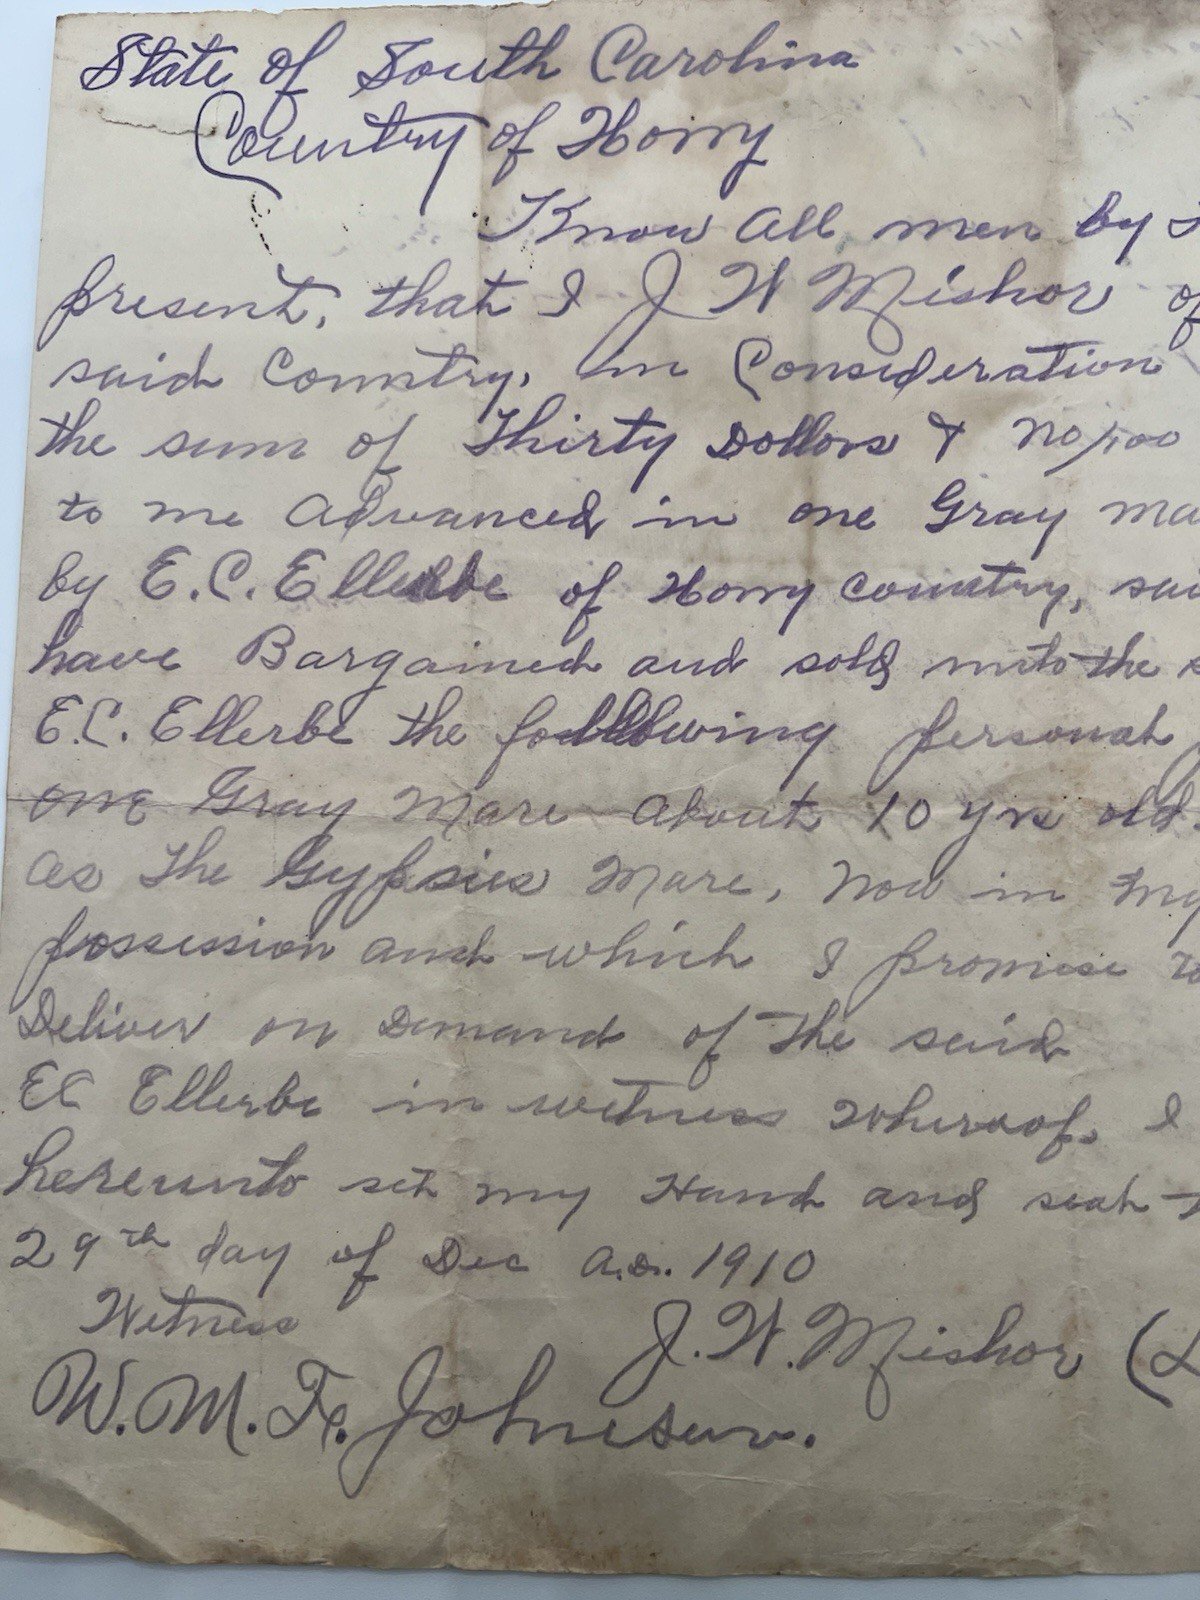 State of South Carolina
Country of Horry
Know all men by
present, that I J W Mishor of
said Country, in Consideration
the sum of Thirty Dollors & no/100
to me Advanced in one Gray ma
by E.C. Ellerbe of Horry Country, sai
have Bargained and sold unto the s
E.C. Ellerbe the following personal
one Gray Mare About 10 yrs old.
as The Gypsies Mare, Now in my
possession and which I promise to
Deliver on Demand of The said
EC Ellerbe in witness Wherof. I
hereunto set my Hand and seal
29th day of Dec A.D. 1910
Witness
J. W. Mishor (L
W. M. F. Johnson.